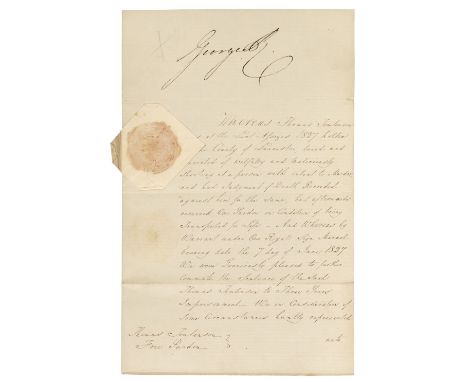 George R
Whereas Thomas Tomlinson
at the Lent Assizes 1827 holden
for the County of Lancaster tried and
convicted of wilfully and maliciously
shooting at a person with intent to Murder
and had Judgment of Death Recorded
against him for the same, but afterwards
received Our Pardon on Condition of being
Transported for Life — And Whereas by
Warrant under Our Royal Sign Manual
bearing date the 7 day of June 1827
We were Graciously pleased to further
commute the Sentence of the said
Thomas Tomlinson to Three Years
Imprisonment — We in Consideration of
some Circumstances humbly represented
Thomas Tomlinson
Free Pardon